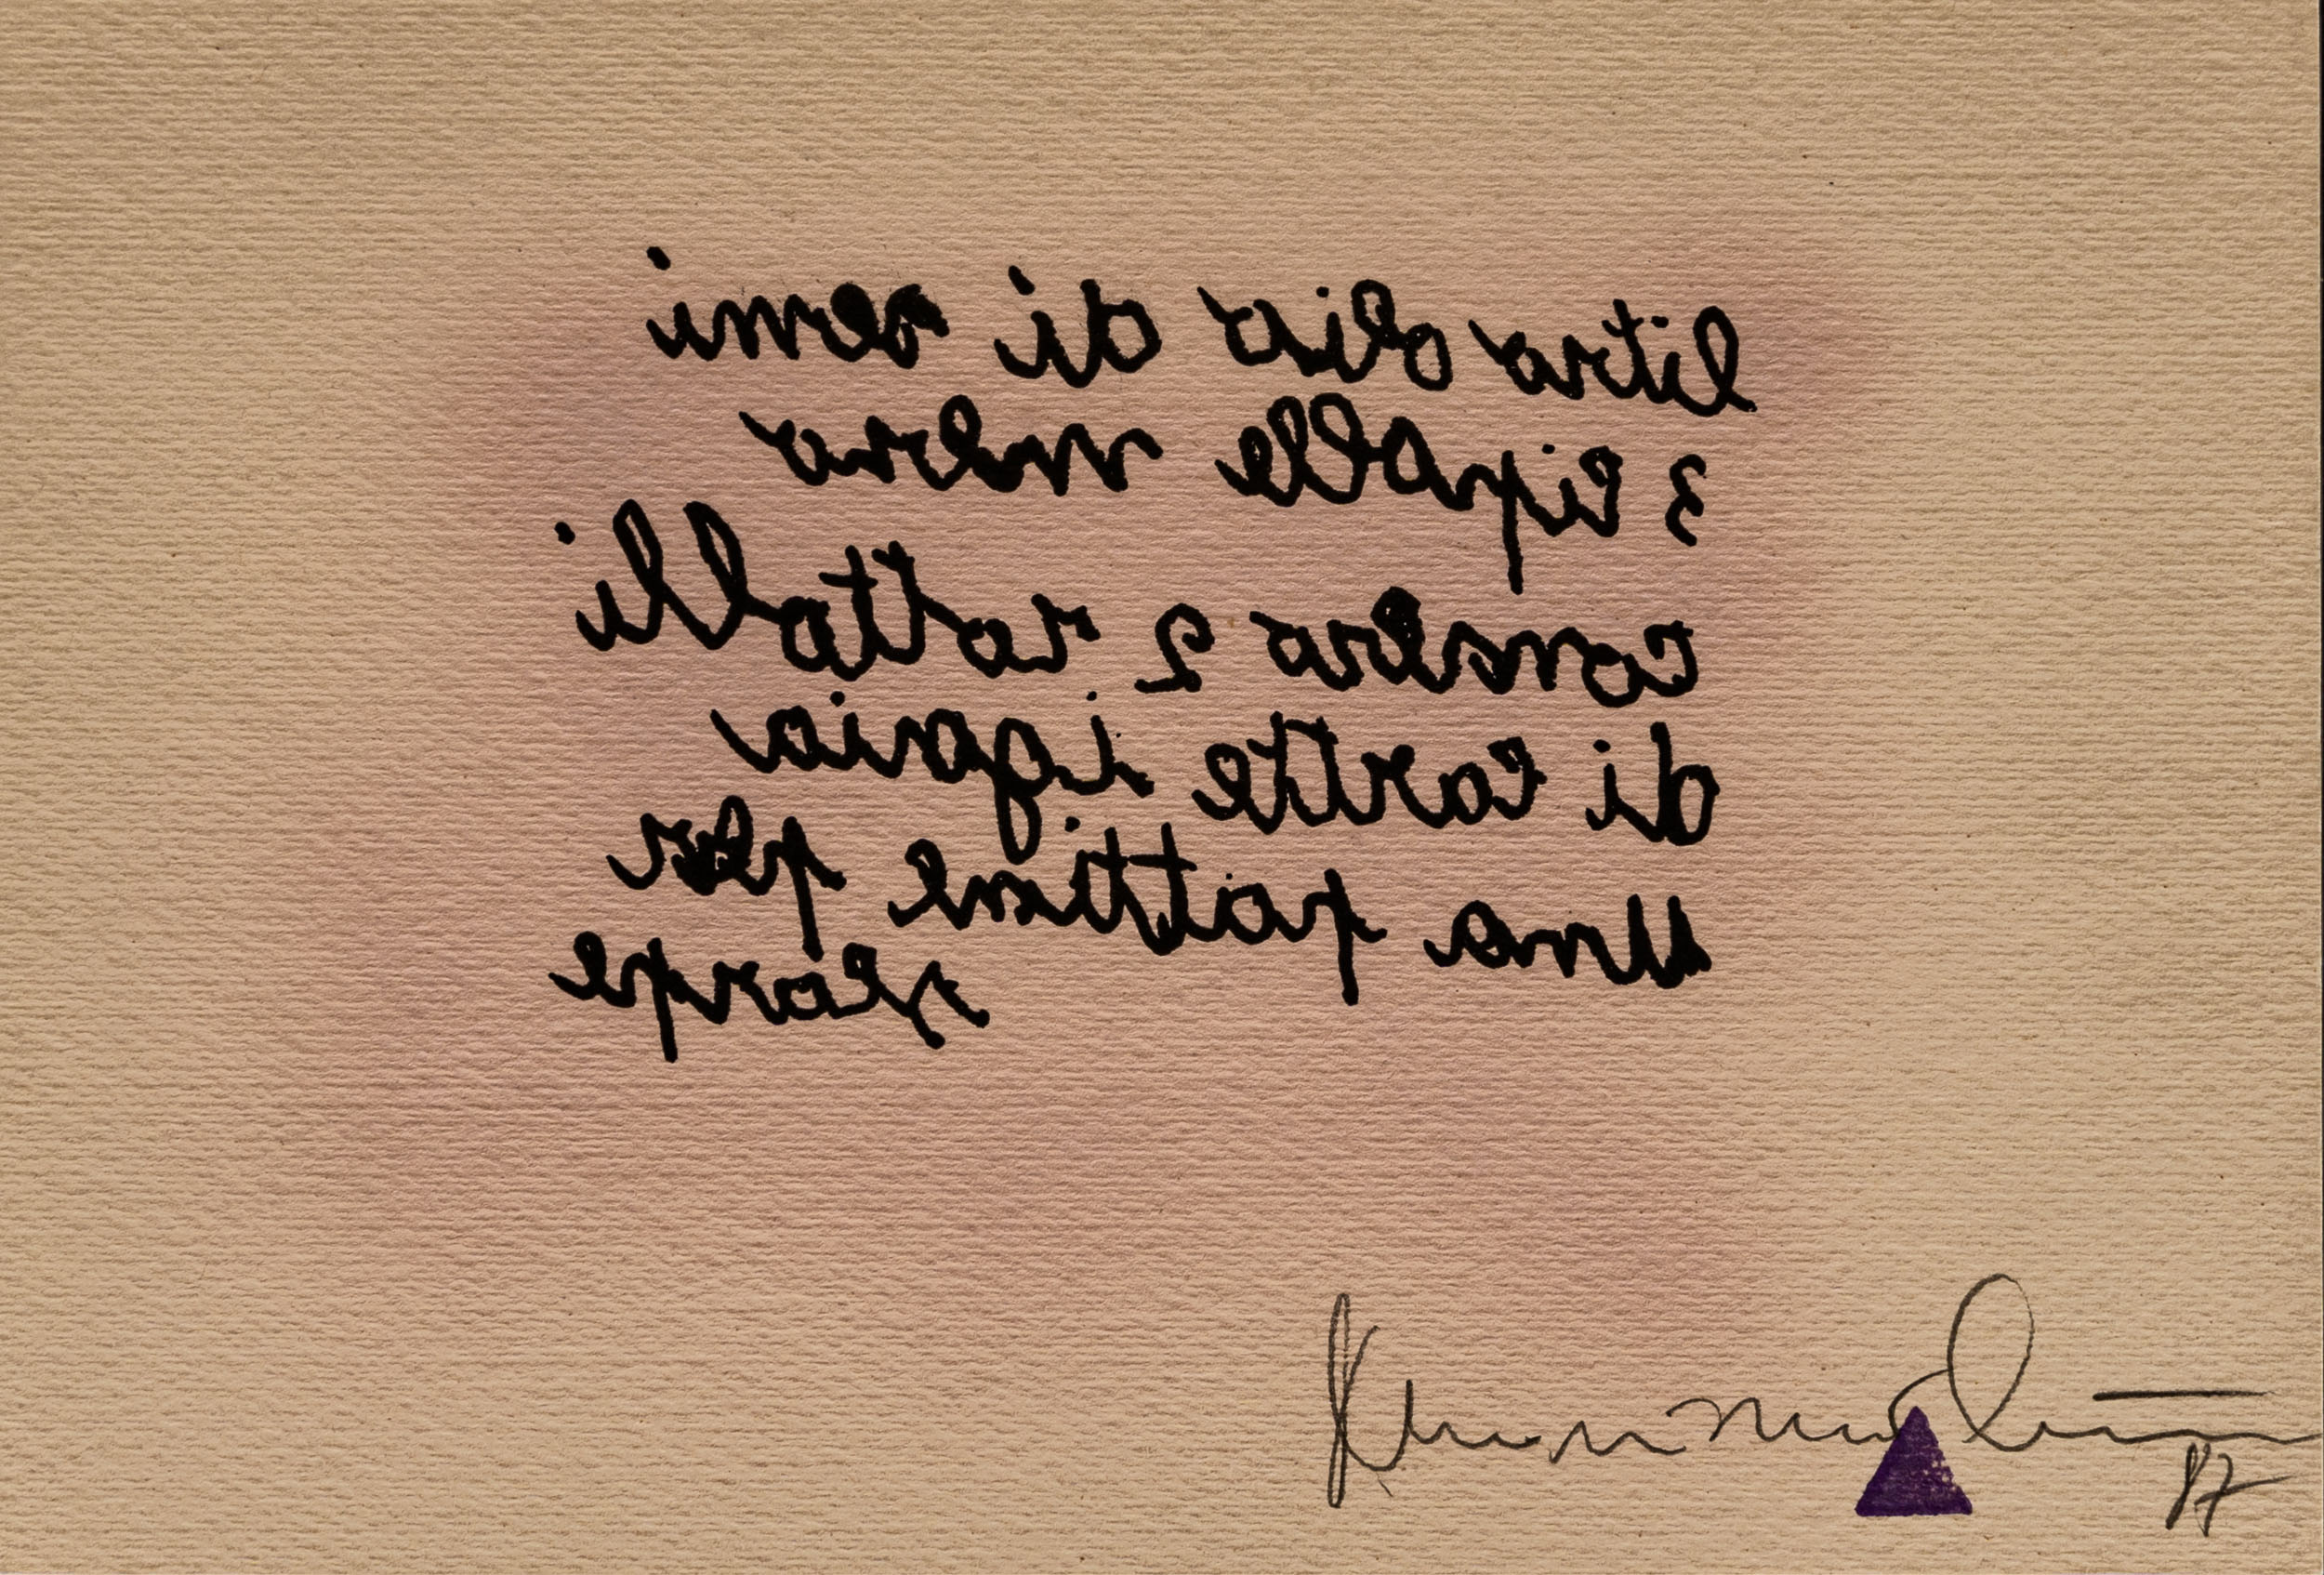 litro olio di semi
3 cipolle
conserva 2 rottolli
di cartte igenica
una pattine per
scarpe
87